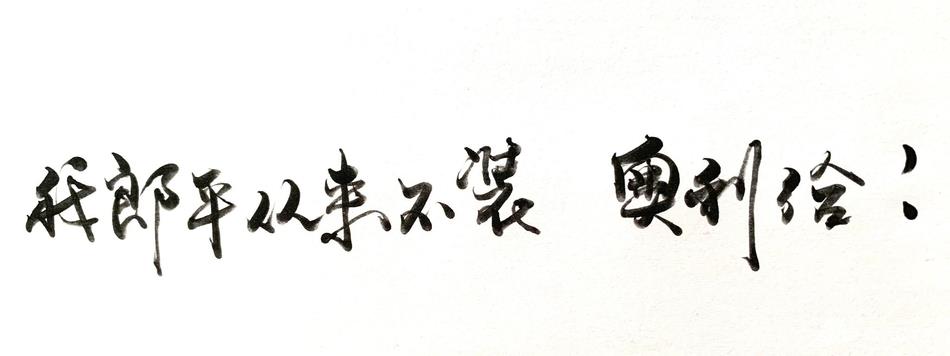 我郎平从来不装 奥利给！